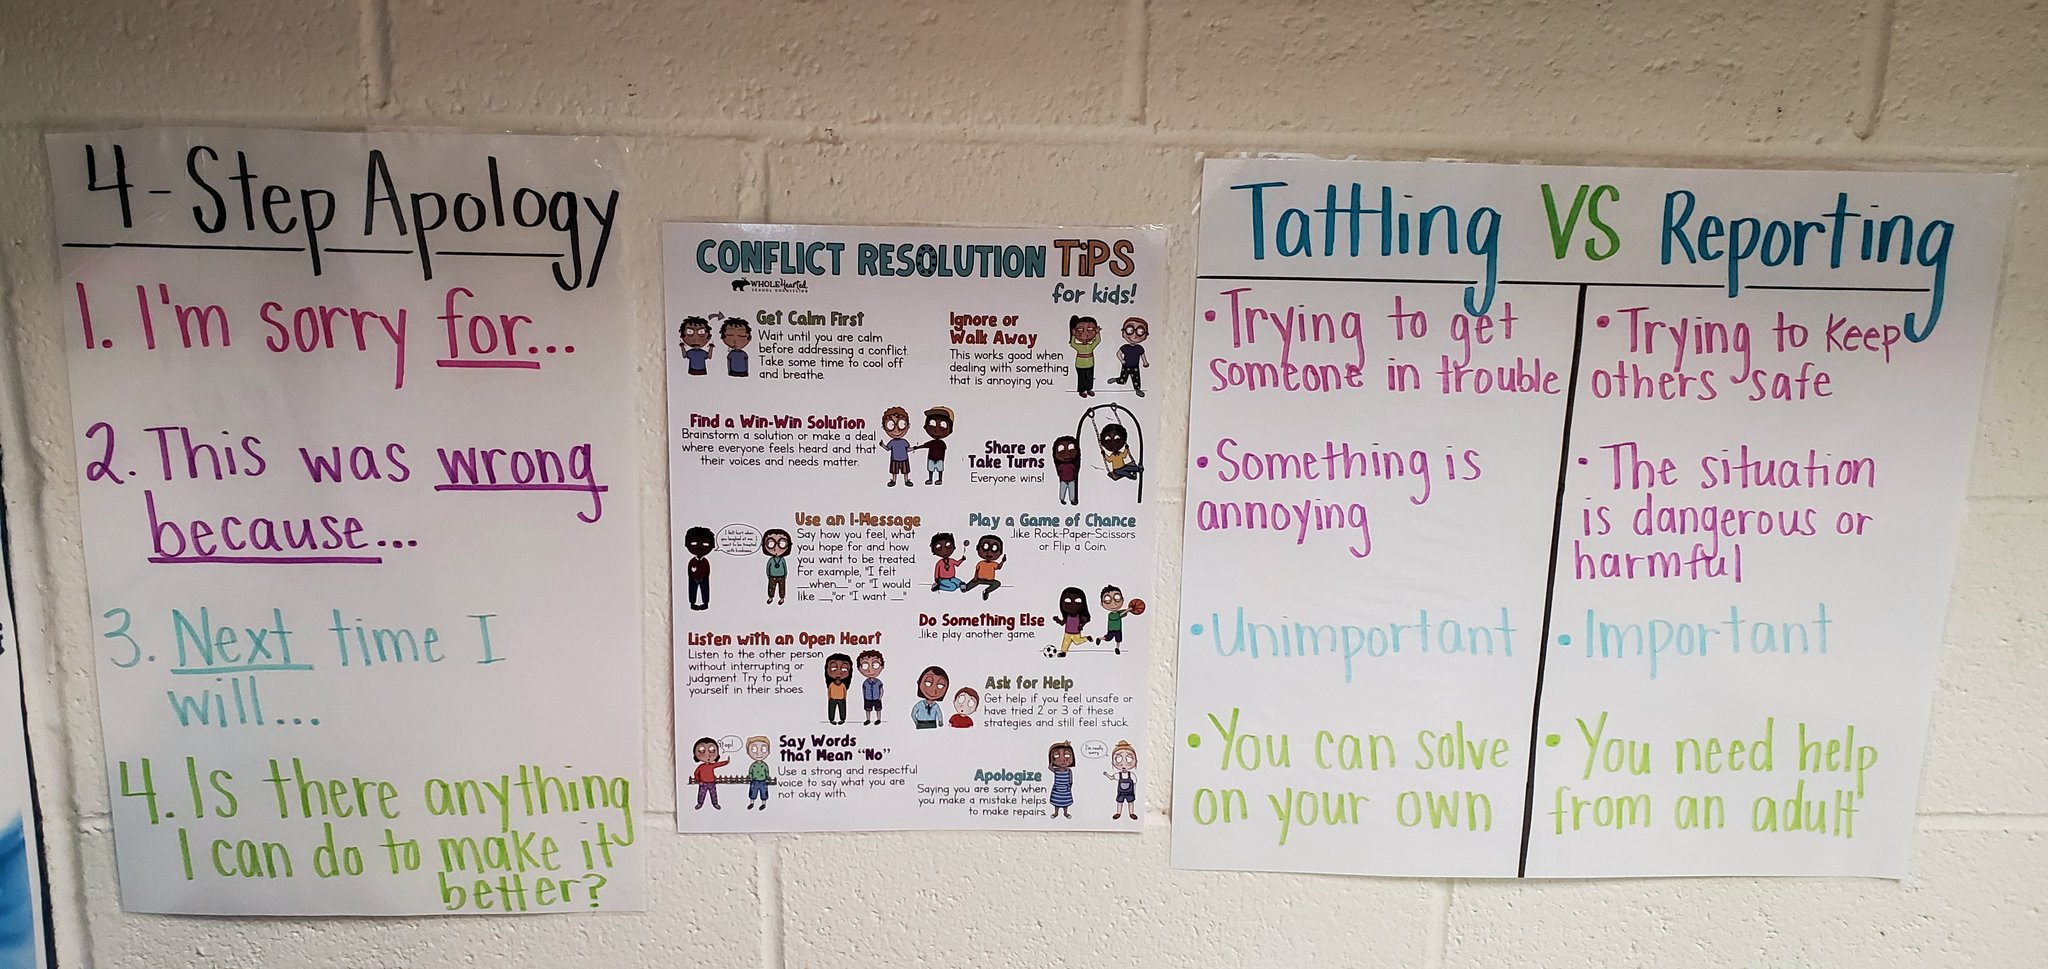 4-Step Apology
1. I'm sorry for...
2. This was wrong
because...
3. Next time I
will...
4. Is there anything
I can do to make it
better?
CONFLICT RESOLUTION TiPS
WHOLEHearted
SCHOOL COUNSELING
for kids!
Get Calm First
Wait until you are calm
before addressing a conflict.
Take some time to cool off
and breathe.
Ignore or
Walk Away
This works good when
dealing with something
that is annoying you.
Find a Win-Win Solution
Brainstorm a solution or make a deal
where everyone feels heard and that
their voices and needs matter.
Share or
Take Turns
Everyone wins!
Use an I-Message
Say how you feel, what
you hope for and how
you want to be treated.
For example, "I felt
__when__" or "I would
like __"or "I want __"
I felt hurt when
you laughed at me.
I want to be treated
with kindness.
Play a Game of Chance
..like Rock-Paper-Scissors
or Flip a Coin.
Do Something Else
..like play another game.
Listen with an Open Heart
Listen to the other person
without interrupting or
judgment. Try to put
yourself in their shoes.
Ask for Help
Get help if you feel unsafe or
have tried 2 or 3 of these
strategies and still feel stuck.
Stop!
Say Words
that Mean "No"
Use a strong and respectful
voice to say what you are
not okay with.
I'm really
sorry
Apologize
Saying you are sorry when
you make a mistake helps
to make repairs.
Tattling VS Reporting
• Trying to get
someone in trouble
• Something is
annoying
• Unimportant
• You can solve
on your own
• Trying to keep
others safe
• The situation
is dangerous or
harmful
• Important
• You need help
from an adult